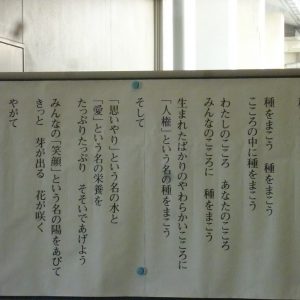 種をまこう　種をまこう
こころの中に種をまこう
わたしのこころ　あなたのこころ
みんなのこころに　種をまこう
生まれたばかりのやわらかいこころに
「人権」という名の種をまこう
そして
「思いやり」という名の水と
「愛」という名の栄養を
たっぷりたっぷり　そそいであげよう
みんなの「笑顔」という名の陽をあびて
きっと　芽が出る　花が咲く
やがて